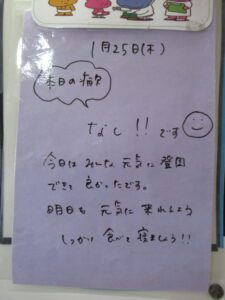 1月25日(木)
本日の病欠
なし!!です
今日は みんな 元気に 登園
できて 良かったです。
明日も 元気に 来れるよう
しっかり 食べて 寝ましょう!!